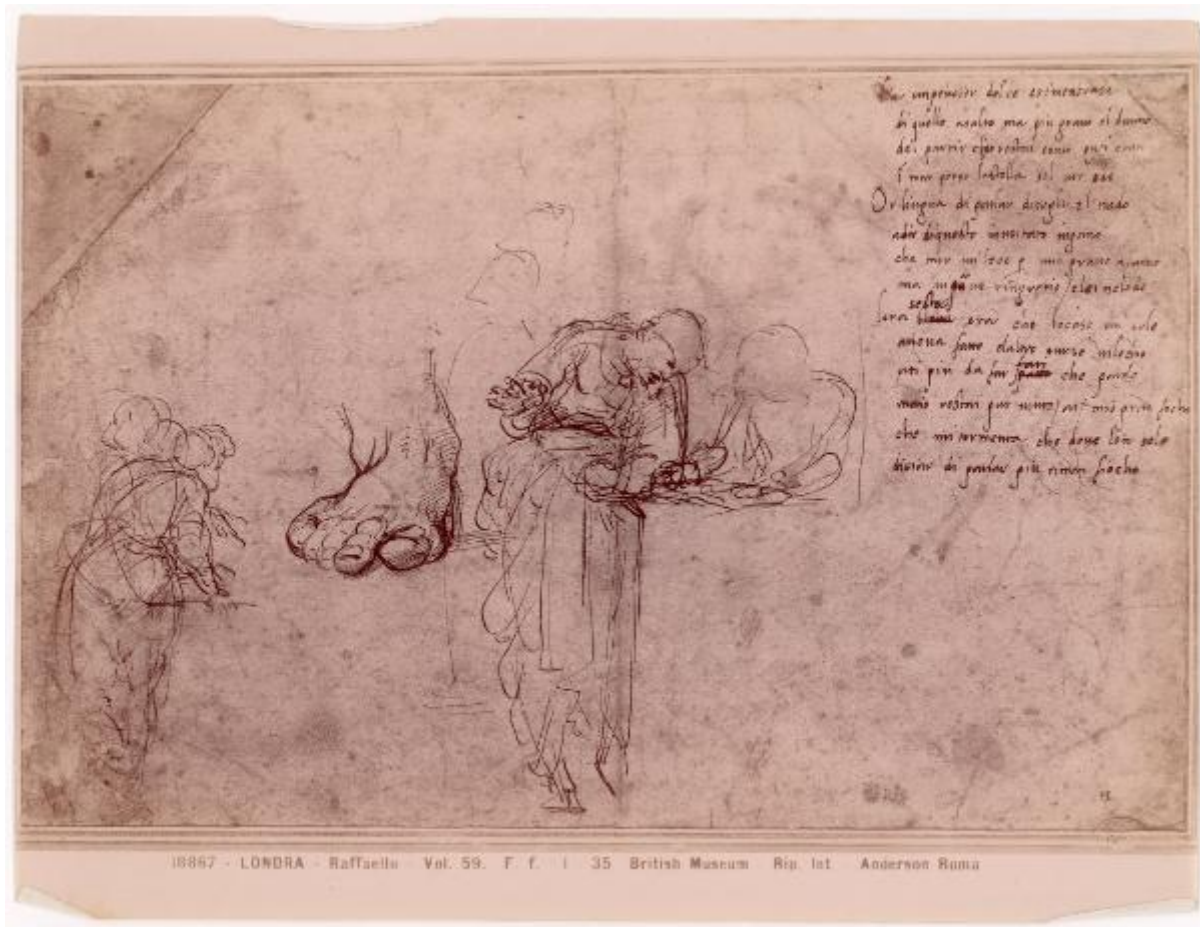 un pensier dolce
di quello asalto ma piu gravo el danno
del partir restai como quei
mar perso la stella sel ver odo
Or lingua di parlar disogli el nodo
a dir di questo inusitato inganno
mi fece p mio gravo afanno
ma ne ringratio e lei ne lodo
sesta
lora era che locaso un sole
aveva fatto
ati piu da far fati che parole
ma io restai pur vinto al mio gran focho
che mi tormenta che dove lon sole
disiar di parlar piu riman fiocho
18867 - LONDRA - Raffaello - Vol. 59. F. f. 1 35 British Museum Rip. Int. Anderson Roma